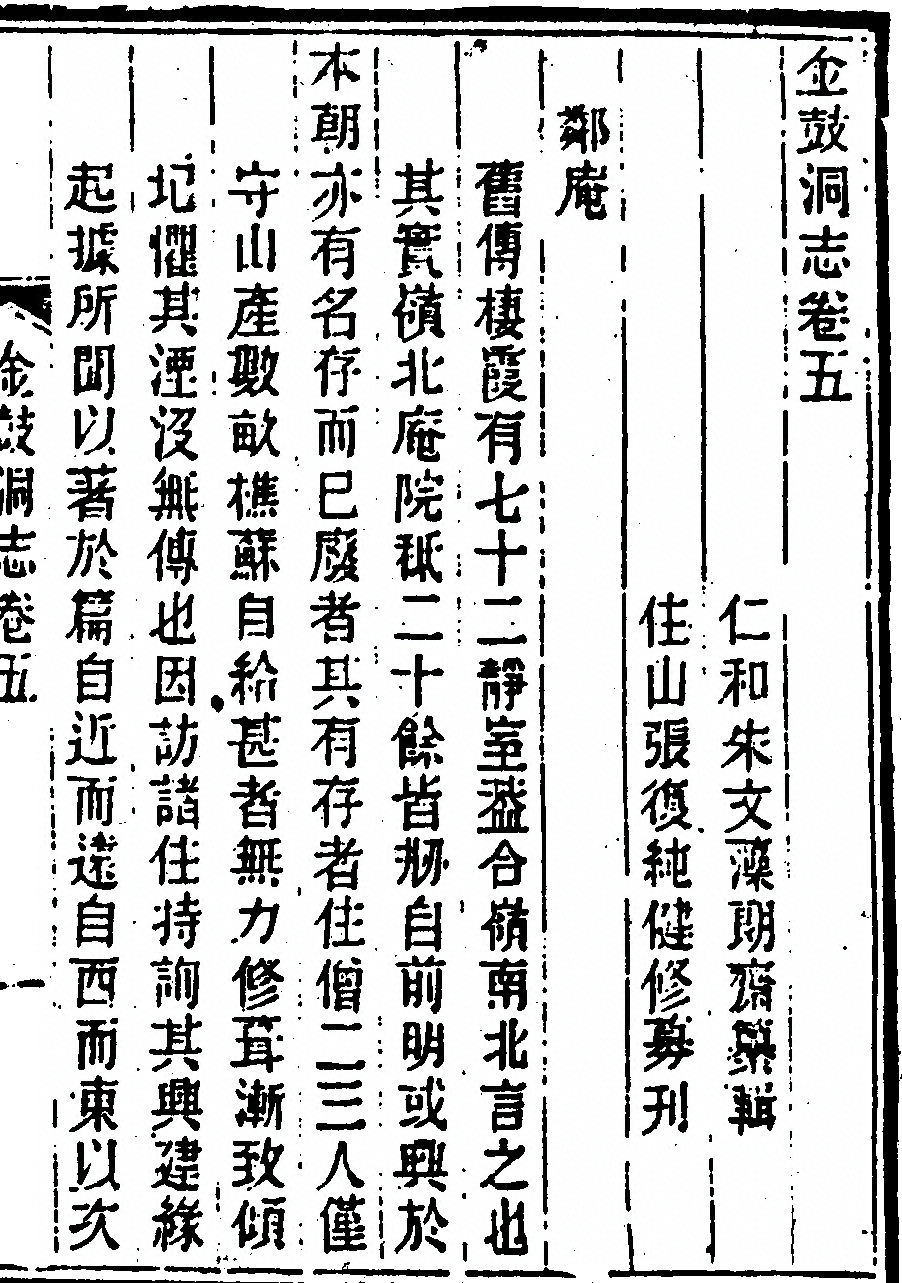 金鼓洞志卷五
仁和朱文藻朗齋纂輯
住山張復純健修募刊
鄰庵
舊傳棲霞有七十二靜室葢合嶺南北言之也
其實嶺北庵院秪二十餘皆刱自前明或興於
本朝亦有名存而巳廢者其有存者住僧二三人僅
守山產數畝樵蘇自給甚者無力修葺漸致傾
圮懼其湮沒無傳也因訪諸住持詢其興建緣
起據所聞以著於篇自近而遠自西而東以次
金鼓洞志卷五
一